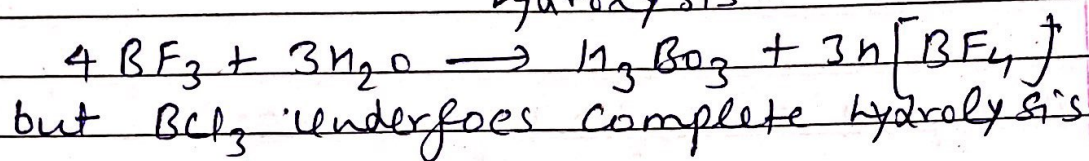 4 BF₃ + 3H₂O ⟶ H₃BO₃ + 3H[BF₄]
but BCl₃ undergoes complete hydrolysis